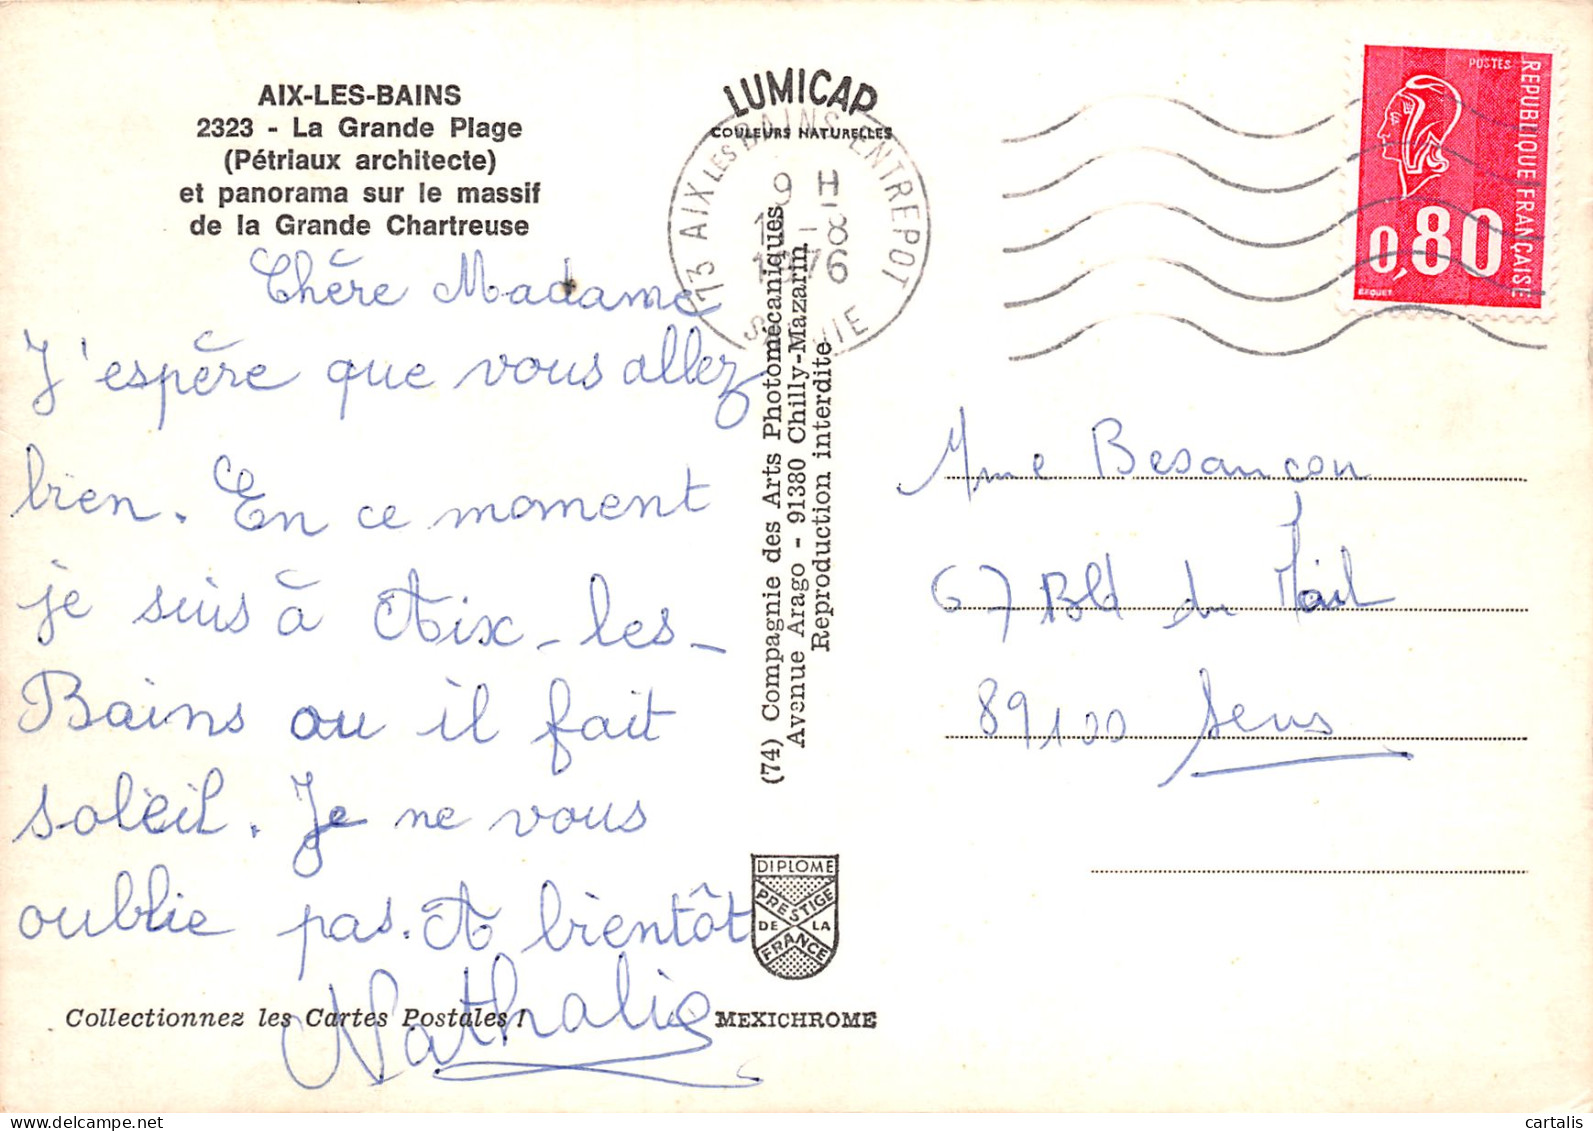 AIX-LES-BAINS
2323 - La Grande Plage
(Pétriaux architecte)
et panorama sur le massif
de la Grande Chartreuse
Chère Madame
J'espère que vous allez
bien. En ce moment
je suis à Aix-les-
Bains ou il fait
soleil. Je ne vous
oublie pas. A bientôt
Nathalie
Collectionnez les Cartes Postales !
LUMICAP
COULEURS NATURELLES
73 AIX LES BAINS ENTREPOT
9 H
-8
1976
SAVOIE
(74) Compagnie des Arts Photomécaniques
Avenue Arago - 91380 Chilly-Mazarin
Reproduction interdite
DIPLOME
PRESTIGE
DE LA
FRANCE
MEXICHROME
POSTES
REPUBLIQUE FRANCAISE
0,80
BEQUET
Mme Besançon
67 Bld du Mail
89100 Sens
cartalis
www.delcampe.net